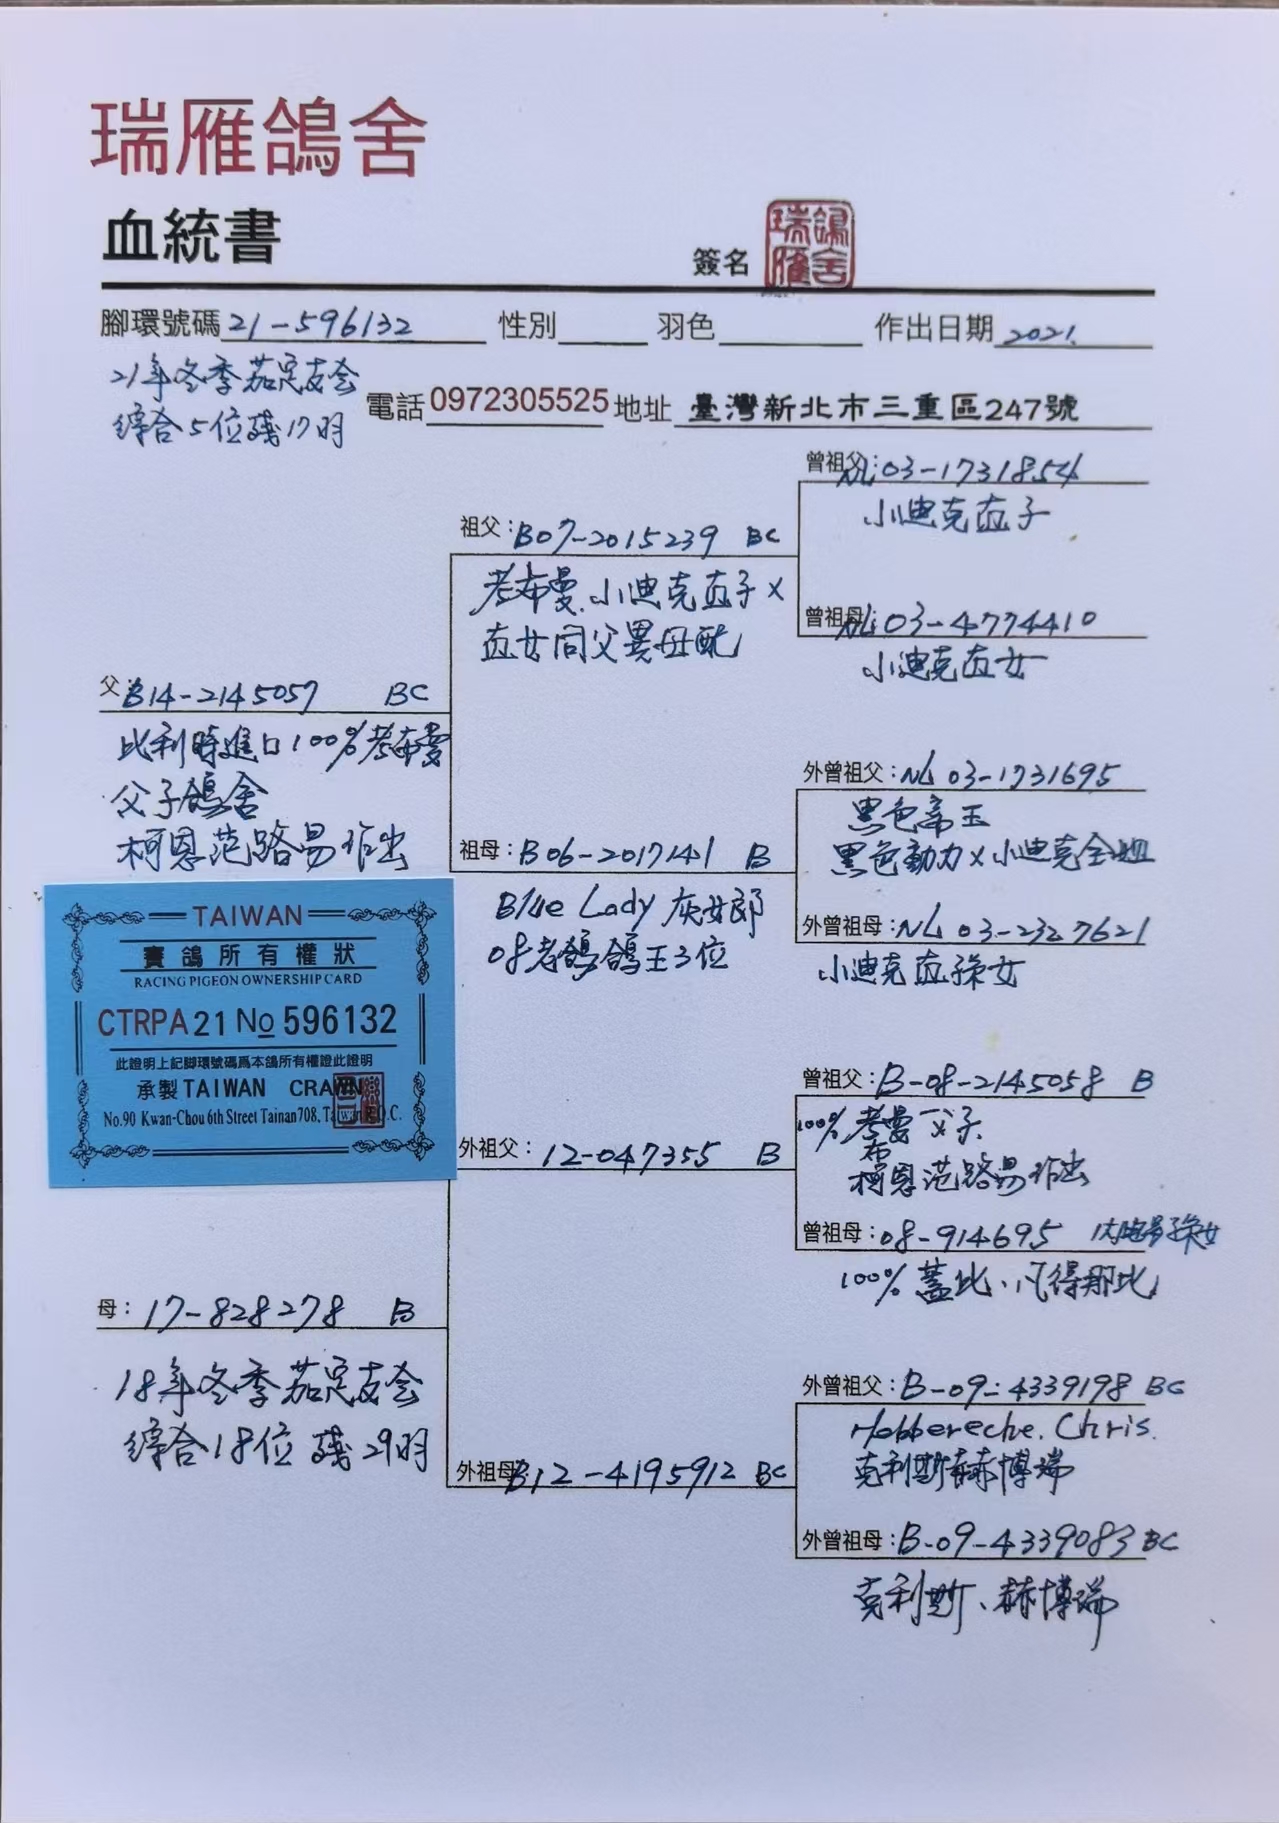 瑞雁鴿舍
血統書
簽名 瑞雁鴿舍
腳環號碼 21-596132 性別 羽色 作出日期 2021.
21年冬季茄萣友会
綜合5位殘17羽
電話 0972305525 地址 臺灣新北市三重區247號
曾祖父: NL 03-1731854
小迪克直子
祖父: B07-2015239 BC
考布曼.小迪克直子×
直女同父異母配
曾祖母: NL 03-4774410
小迪克直女
父: B14-2145057 BC
比利時進口100%考布曼
父子鴿舍
柯恩范路易作出
外曾祖父: NL 03-1731695
黑色帝王
黑色動力×小迪克全姐
祖母: B06-2017141 B
Blue Lady 灰女郎
08老鴿鴿王3位
外曾祖母: NL 03-2327621
小迪克直孫女
TAIWAN
賽鴿所有權狀
RACING PIGEON OWNERSHIP CARD
CTRPA 21 No 596132
此證明上記脚環號碼爲本鴿所有權證此證明
承製 TAIWAN CRAWN
No.90 Kwan-Chou 6th Street Tainan 708, Taiwan R.O.C.
曾祖父: B-08-2145058 B
100%考布曼父子
柯恩范路易作出
外祖父: 12-047355 B
曾祖母: 08-914695 孫女
100%蓋比、凡得那比
母: 17-828278 B
18年冬季茄萣友会
綜合18位 殘29羽
外曾祖父: B-09-4339198 BC
Hebbereche. Chris.
克利斯赫博瑞
外祖母: B12-4195912 BC
外曾祖母: B-09-4339083 BC
克利斯、赫博瑞